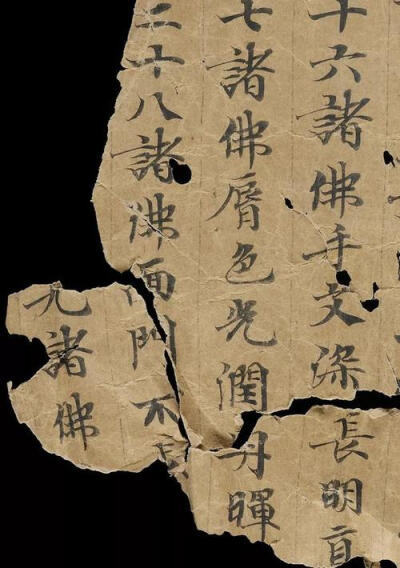 十六諸佛手文深長明直
七諸佛脣色光潤丹暉
二十八諸佛面門不長
九諸佛